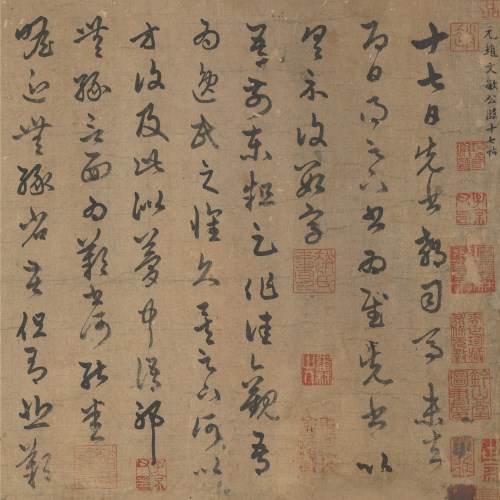 元趙文敏公臨十七帖
十七日先書郗司馬未去
即日得足下書為慰先書以
具示復數字
吾前東粗足作佳觀吾
為逸民之懷久矣足下何以
方復及此似夢中語耶
無緣言面為歎書何能悉
瞻近無緣省苦但有悲歎